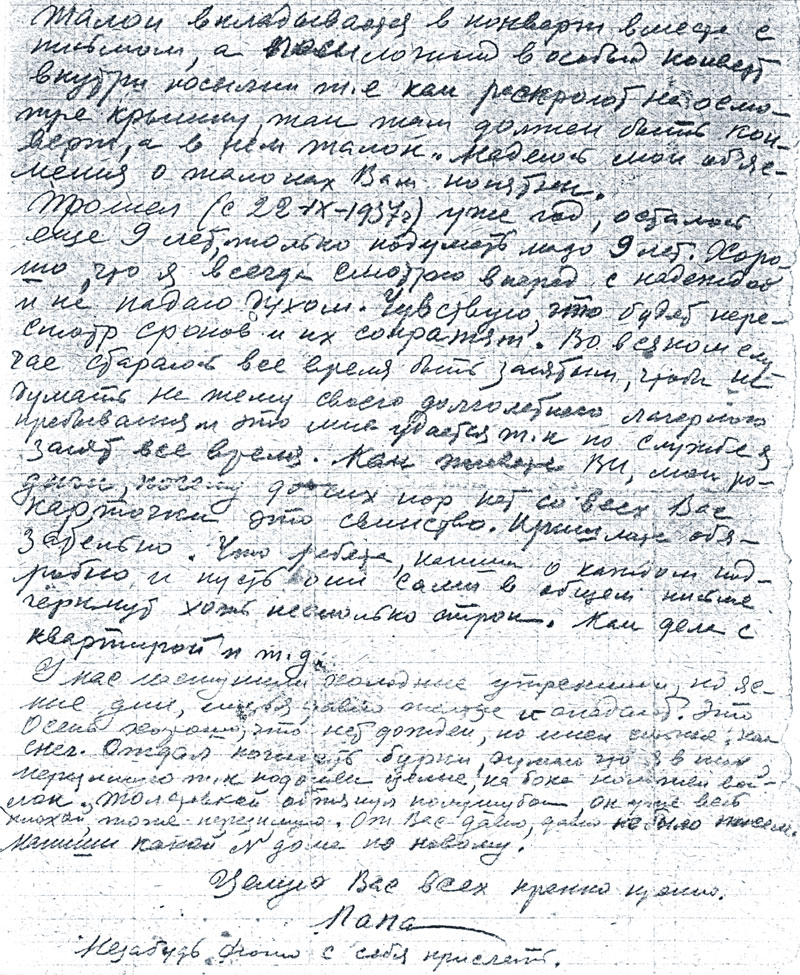 Талон вкладывается в конверт вместе с
письмом, а положил в особый конверт
внутри посылки т.е как раскроют на осмо-
тре крышку так там должен быть кон-
верт, а в нем талон. Надеюсь мои объяс-
нения о талонах Вам понятны.
Прошел (с 22-IX-1937г) уже год, осталось
еще 9 лет, только подумать надо 9 лет. Хоро-
шо, что я всегда смотрю вперед с надеждой
и не падаю духом. Чувствую, что будет пере-
смотр сроков и их сократят. Во всяком слу
чае стараюсь все время быть занятым, чтобы не
думать на тему своего долголетнего лагерного
пребывания и это мне удается т.к по службе я
занят все время. Как живете Вы, мои ро-
дные, почему до сих пор нет со всех Вас
карточки это свинство. Пришлите обя-
зательно. Что ребята, напиши о каждом под-
робно и пусть они сами в общем письме
черкнут хоть несколько строк. Как дела с
квартирой и т.д.
У нас наступили холодные утренники, но яс-
ные дни, листья давно опадают. Это
Осень хорошо, что нет дождей, но
снег. Отдал починить бурки, думаю что я в них
перезимую т.к подошвы целые, на бока вой-
лок. Толстовкой обтянул полушубок, он уже весь
плохой, тоже перезимую. От Вас давно, давно не было писем.
напиши какой № дома по новому.
Целую Вас всех крепко крепко.
Папа
Незабудь фото с себя прислать.